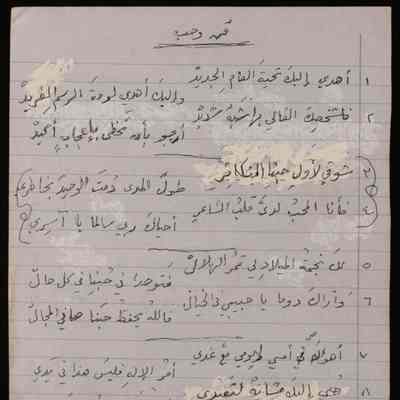 ١ أهدي إليك تحية العام الجديد
وإليك أهدي لوحة الرسم الفريد
٢ فلشخصك الغالي
أرجو بأن تحظى بإعجاب أكيد
٣ شوقي لأول حبنا المتكاثر
طول المدى دمت الوحيد بخاطري
٤ فأنا المحب لدى قلب الشاعر
أحياك ربي سالما يا آسري
٥ لك نجمة الميلاد لي قمر الهلال
فتوحدا في حبنا في كل حال
٦ وأراك دوما يا حبيبي في الخيال
فالله يحفظ حبنا هاني المجال
٧ أهواك في أمسي ويومي مع غدي
أمر الإله فليس هذا في يدي
٨ إليك